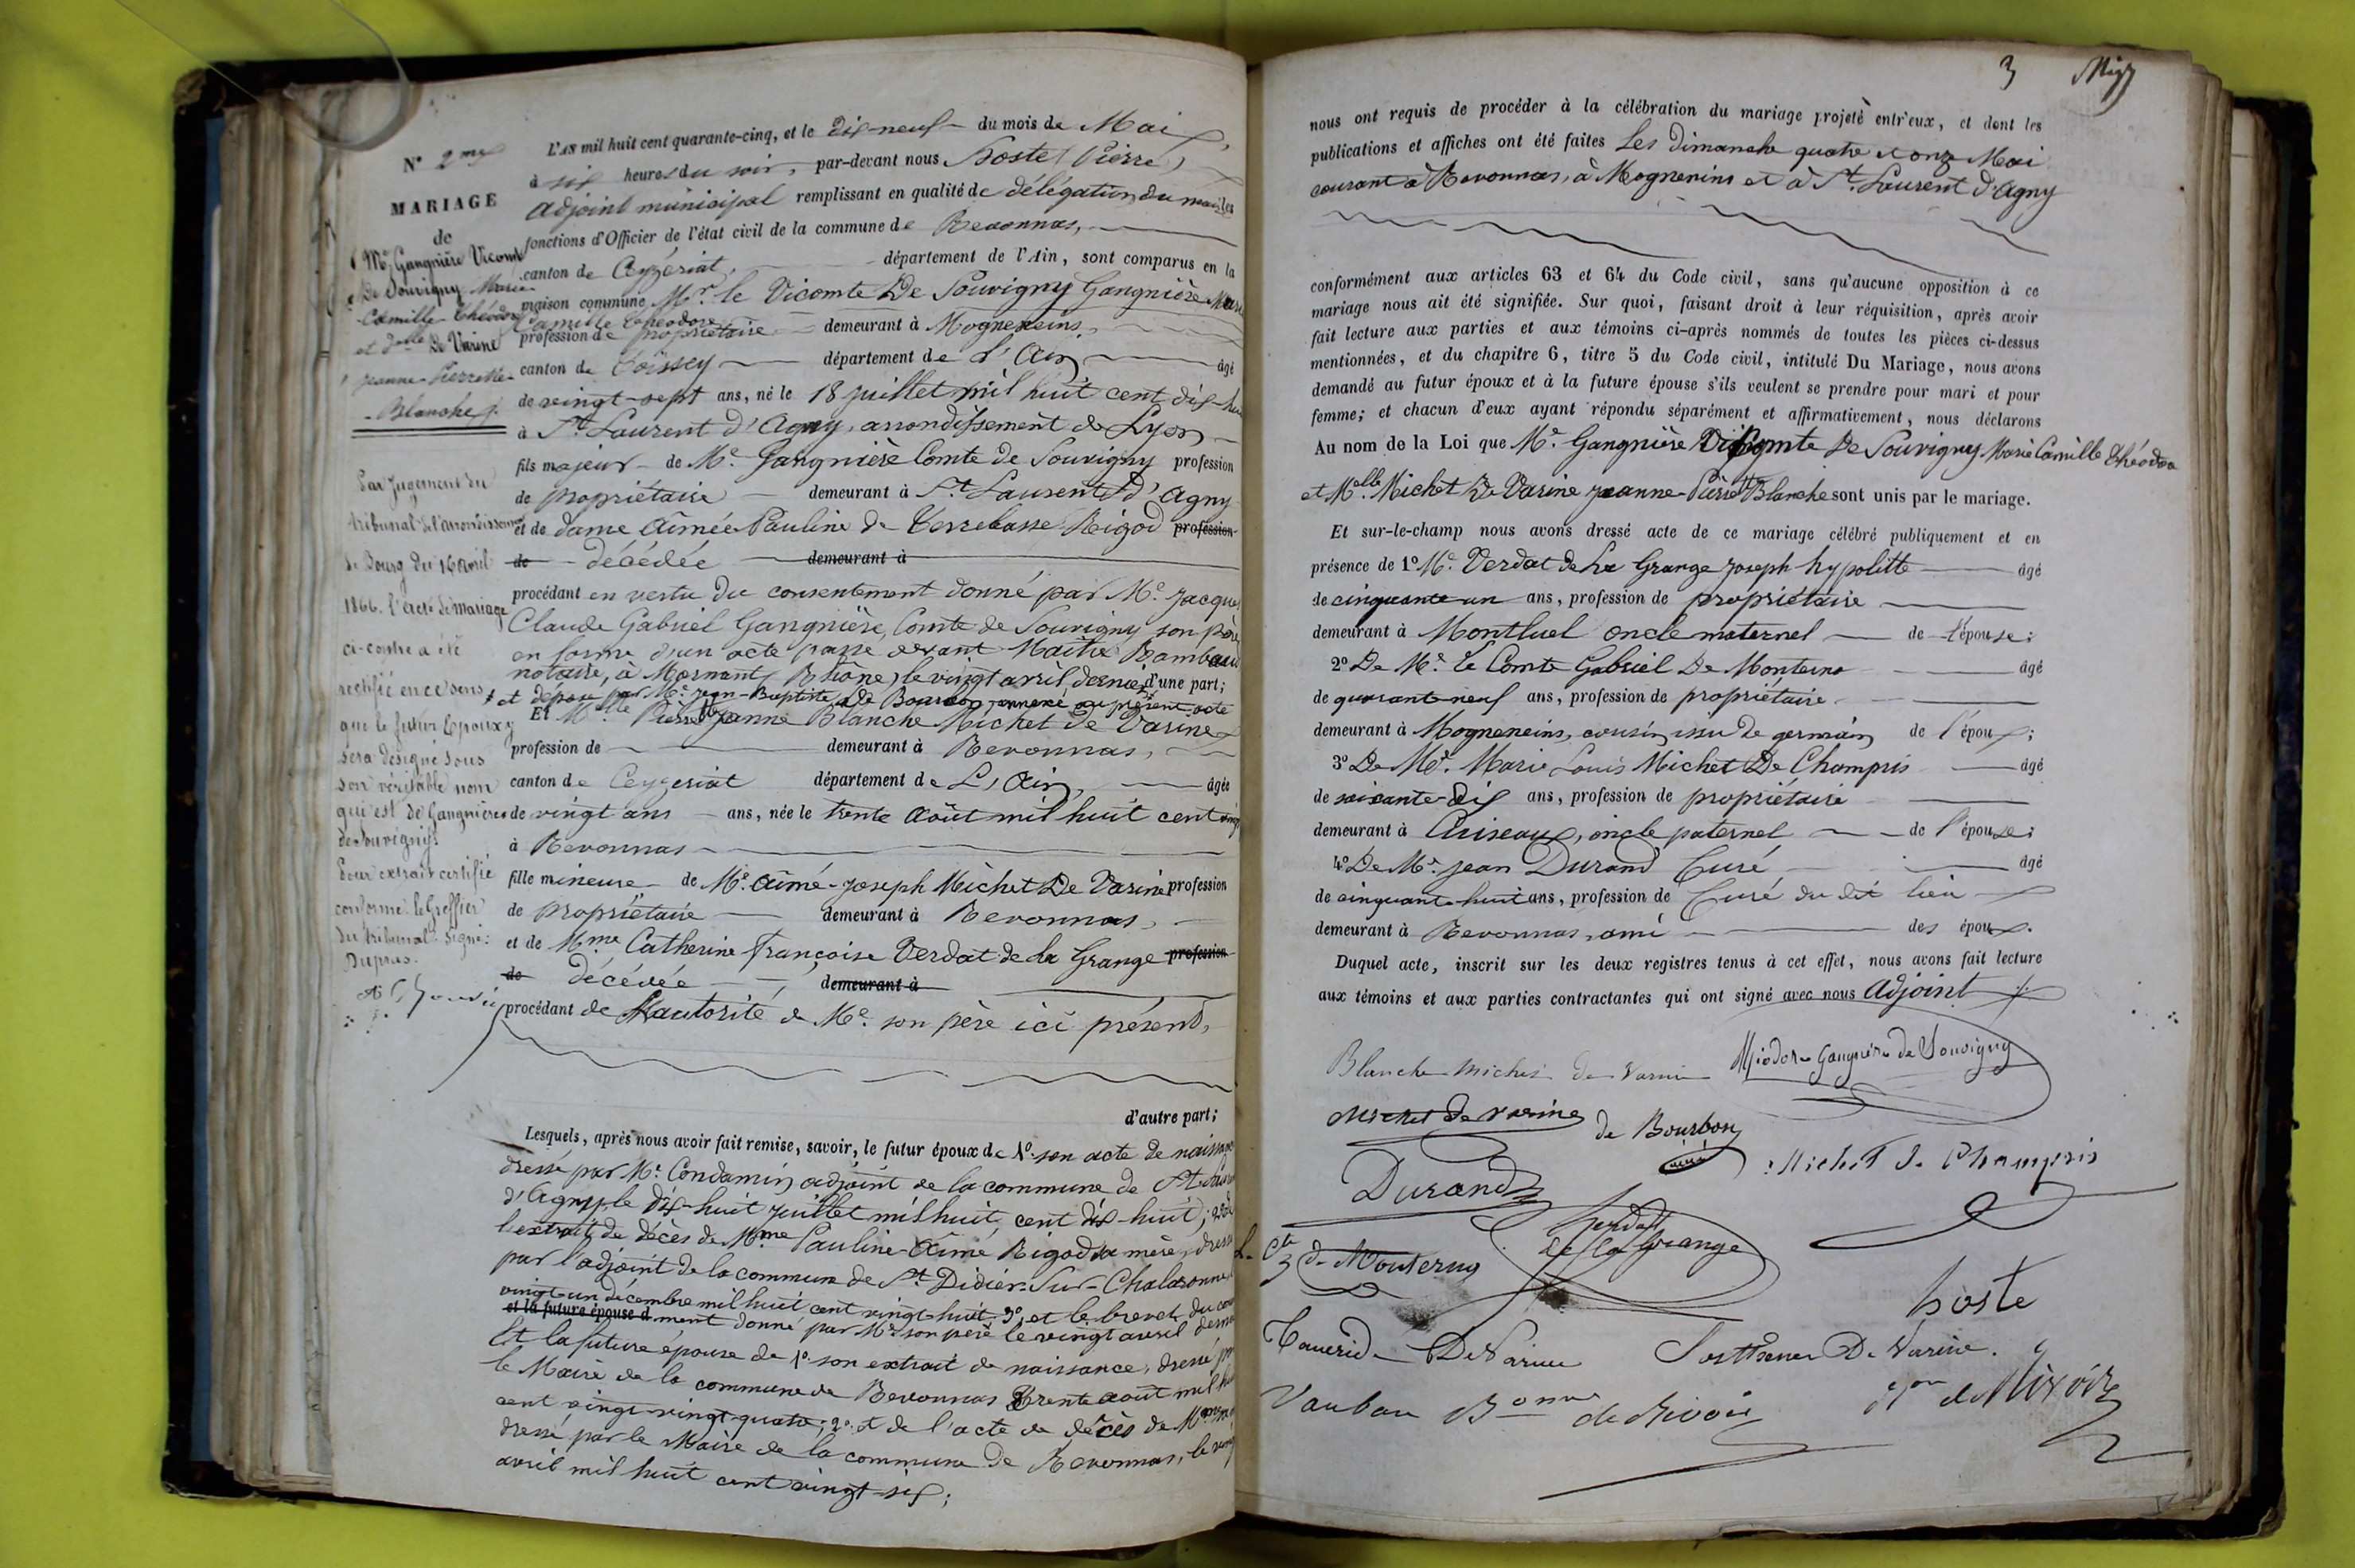 N° 2me
MARIAGE
de
Mr Gangnière Vicomte
De Souvigny Marie
Camille Théodore
et Delle De Varine
Jeanne Pierrette
Blanche
Par jugement du
tribunal de l'arrondissement
de Bourg du 16 avril
1866. l'acte de mariage
ci-contre a été
rectifié en ce sens
que le futur Epoux
sera désigné sous
son véritable nom
qui est de Gangnières
de Souvigny
Pour extrait certifié
conforme le Greffier
du tribunal signé:
L'AN mil huit cent quarante-cinq, et le dix-neuf du mois de Mai
à six heures du soir, par-devant nous hoste Pierre,
Adjoint municipal remplissant en qualité de délégation du maire les
fonctions d'Officier de l'état civil de la commune de Revonnas,
canton de Ceyzeriat, département de l'Ain, sont comparus en la
maison commune Mr. le Vicomte De Souvigny Gangnière Marie
Camille Théodore
profession de propriétaire demeurant à Mogneneins
canton de Toissey département de l'Ain âgé
de vingt-sept ans, né le 18 juillet mil huit cent dix-huit
à St Laurent d'Agny, arrondissement de Lyon
fils majeur de Mr. Gangnière Comte de Souvigny profession
de propriétaire demeurant à St Laurent d'Agny
et de dame Aimée Pauline de Terrebasse Rigod profession
de décédée demeurant à
procédant en vertu du consentement donné par Mr. Jacques
Claude Gabriel Gangnière, Comte de Souvigny son père
en forme d'un acte passé devant Maître Rambaud
notaire, à Mornant, Rhône, le vingt avril dernier d'une part;
et déposé par Mr. Jean-Baptiste De Bourbon, annexé au présent acte
Et Melle Pierrette Jeanne Blanche Michet de Varine
profession de demeurant à Revonnas,
canton de Ceyzeriat département de L'Ain, âgée
de vingt ans ans, née le trente Août mil huit cent vingt
à Revonnas
fille mineure de Mr. Aimé-Joseph Michet De Varine profession
de propriétaire demeurant à Revonnas,
et de Mme Catherine Françoise Verdat de La Grange profession
de décédée demeurant à
procédant de l'autorité de Mr. son père ici présent,
d'autre part;
Lesquels, après nous avoir fait remise, savoir, le futur époux de 1° son acte de naissance
dressé par Mr. Condamin adjoint de la commune de St Laurent
d'Agny, le dix-huit juillet mil huit cent dix-huit;
l'extrait de décès de Mme Pauline Aimé Rigod sa mère, dressé
par l'adjoint de la commune de St Didier-Sur-Chalaronne
vingt-un décembre mil huit cent vingt-huit 3° et le brevet du
et la future épouse d ment donné par Mr son père le vingt avril dernier
Et la future épouse de 1° son extrait de naissance, dressé
le Maire de la commune de Revonnas trente août mil huit
cent vingt-quatre; 2° et de l'acte de décès de Mme
dressé par le Maire de la commune de Revonnas, le
avril mil huit cent vingt-six;
3
nous ont requis de procéder à la célébration du mariage projeté entr'eux, et dont les
publications et affiches ont été faites Les Dimanche quatre et onze Mai
courant à Revonnas, à Mogneneins et à St Laurent d'Agny
conformément aux articles 63 et 64 du Code civil, sans qu'aucune opposition à ce
mariage nous ait été signifiée. Sur quoi, faisant droit à leur réquisition, après avoir
fait lecture aux parties et aux témoins ci-après nommés de toutes les pièces ci-dessus
mentionnées, et du chapitre 6, titre 5 du Code civil, intitulé Du Mariage, nous avons
demandé au futur époux et à la future épouse s'ils veulent se prendre pour mari et pour
femme; et chacun d'eux ayant répondu séparément et affirmativement, nous déclarons
Au nom de la Loi que Mr. Gangnière Vicomte De Souvigny Marie Camille Théodore
et Melle. Michet De Varine Jeanne-Pierrette Blanche sont unis par le mariage.
Et sur-le-champ nous avons dressé acte de ce mariage célébré publiquement et en
présence de 1° Mr. Verdat de La Grange Joseph hypolitte âgé
de cinquante un ans, profession de propriétaire
demeurant à Montluel oncle maternel de l'épouse;
2° De Mr. Le Comte Gabriel De Monterno âgé
de quarant neuf ans, profession de propriétaire
demeurant à Mogneneins, cousin issu de germain de l'époux;
3° De Mr. Marie Louis Michet De Champris âgé
de soixante-dix ans, profession de propriétaire
demeurant à Cuiseaux, oncle paternel de l'épouse;
4° De Mr. Jean Durand Curé âgé
de cinquante-huit ans, profession de Curé du dit lieu
demeurant à Revonnas, ami des époux.
Duquel acte, inscrit sur les deux registres tenus à cet effet, nous avons fait lecture
aux témoins et aux parties contractantes qui ont signé avec nous Adjoint
Blanche Michet de Varine Théodore Gangnière de Souvigny
Michet de Varine de Bourbon Michet de Champris
Durand
Verdat
de la Grange
Le Cte G de Monterno
hoste
De Varine Sosthène De Varine.
Vauban Bonne de Rivoire Bon de Rivoire